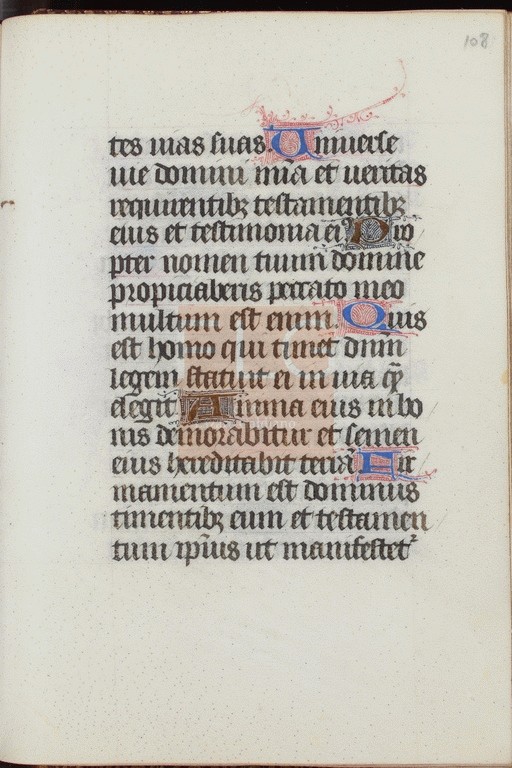 108
tes uias suas. Uniuerse
uie domini mĩa et ueritas
requirentibꝫ testamentibꝫ
eius et testimonia ei⁹ Pro
pter nomen tuum domine
propiciaberis peccato meo
multum est enim. Quis
est homo qui timet dnm̄
legem statuit ei in uia qᷓ
elegit Anima eius in bo
nis demorabitur et semen
eius hereditabit terrā Fir
mamentum est dominus
timentibꝫ eum et testamen
tum ip̄ius ut manifestetᷣ